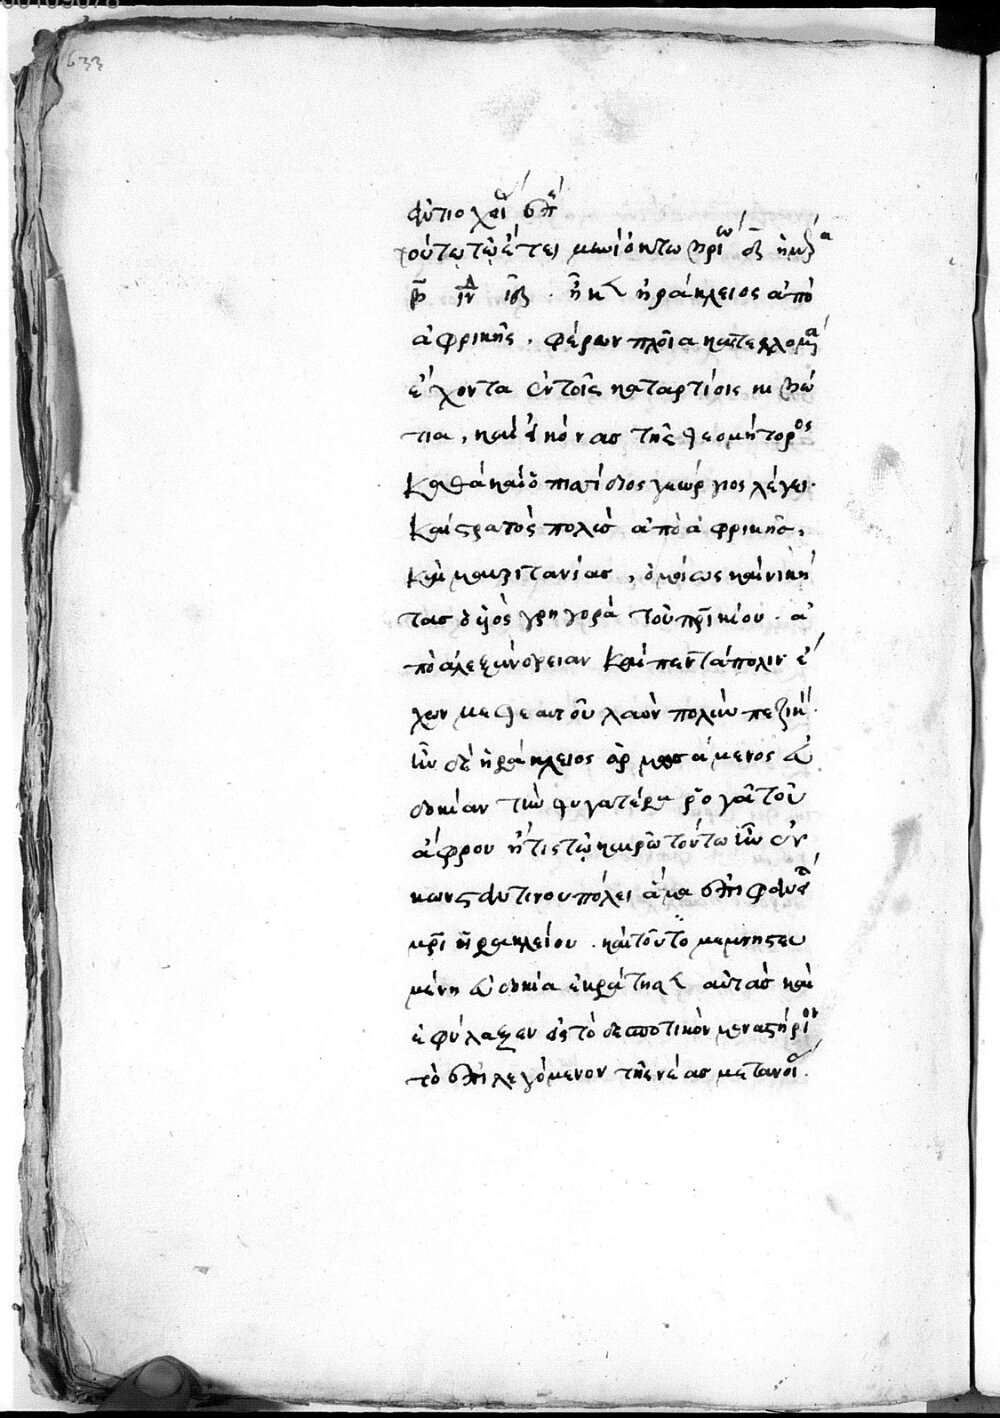 633
ἀντιοχεί ἐπι
τούτω τῶ ἔτει μηνὶ ὀκτωβρίω δ ἡμέρα
β ἰν ιδ. ἧκεν ἡράκλειος ἀπὸ
ἀφρικῆς, φέρων πλοῖα καστελλομένα
ἔχοντα ἐν τοῖς καταρτίοις κιβώ
τια, καὶ εἰκόνας τῆς θεομήτορος
Καθὰ καὶ ὁ πισίδιος γεώργιος λέγει.
Καὶ στρατὸς πολὺς ἀπὸ ἀφρικῆς,
Καὶ μαυριτανίας, ὁμοίως καὶ νική
τας ὁ υἱὸς γρηγορᾶ τοῦ πρικίου. ἀ
πὸ ἀλεξανδρειαν Καὶ πεντάπολιν ἔ
χων μεθ ἑαυτοῦ λαὸν πολὺν πεζικὴ.
ἦν δὲ ἡράκλειος ἁρμοσάμενος εὐ
δοκίαν τὴν θυγατέρα ρογᾶ τοῦ
ἄφρου ἥτις τῶ καιρῶ τούτω ἦν ἐν
κωνσταντινουπόλει ἅμα ἐπιφανεία
μρὶ ἡρακλείου. καὶ τοῦτο μεμνηστευ
μένη εὐδοκία ἐκράτησεν αὐτὰς καὶ
ἐφύλαξεν εἰς τὸ δεσποτικὸν μοναστήριον
τὸ ἐπιλεγόμενον τῆς νέας μετανοί.